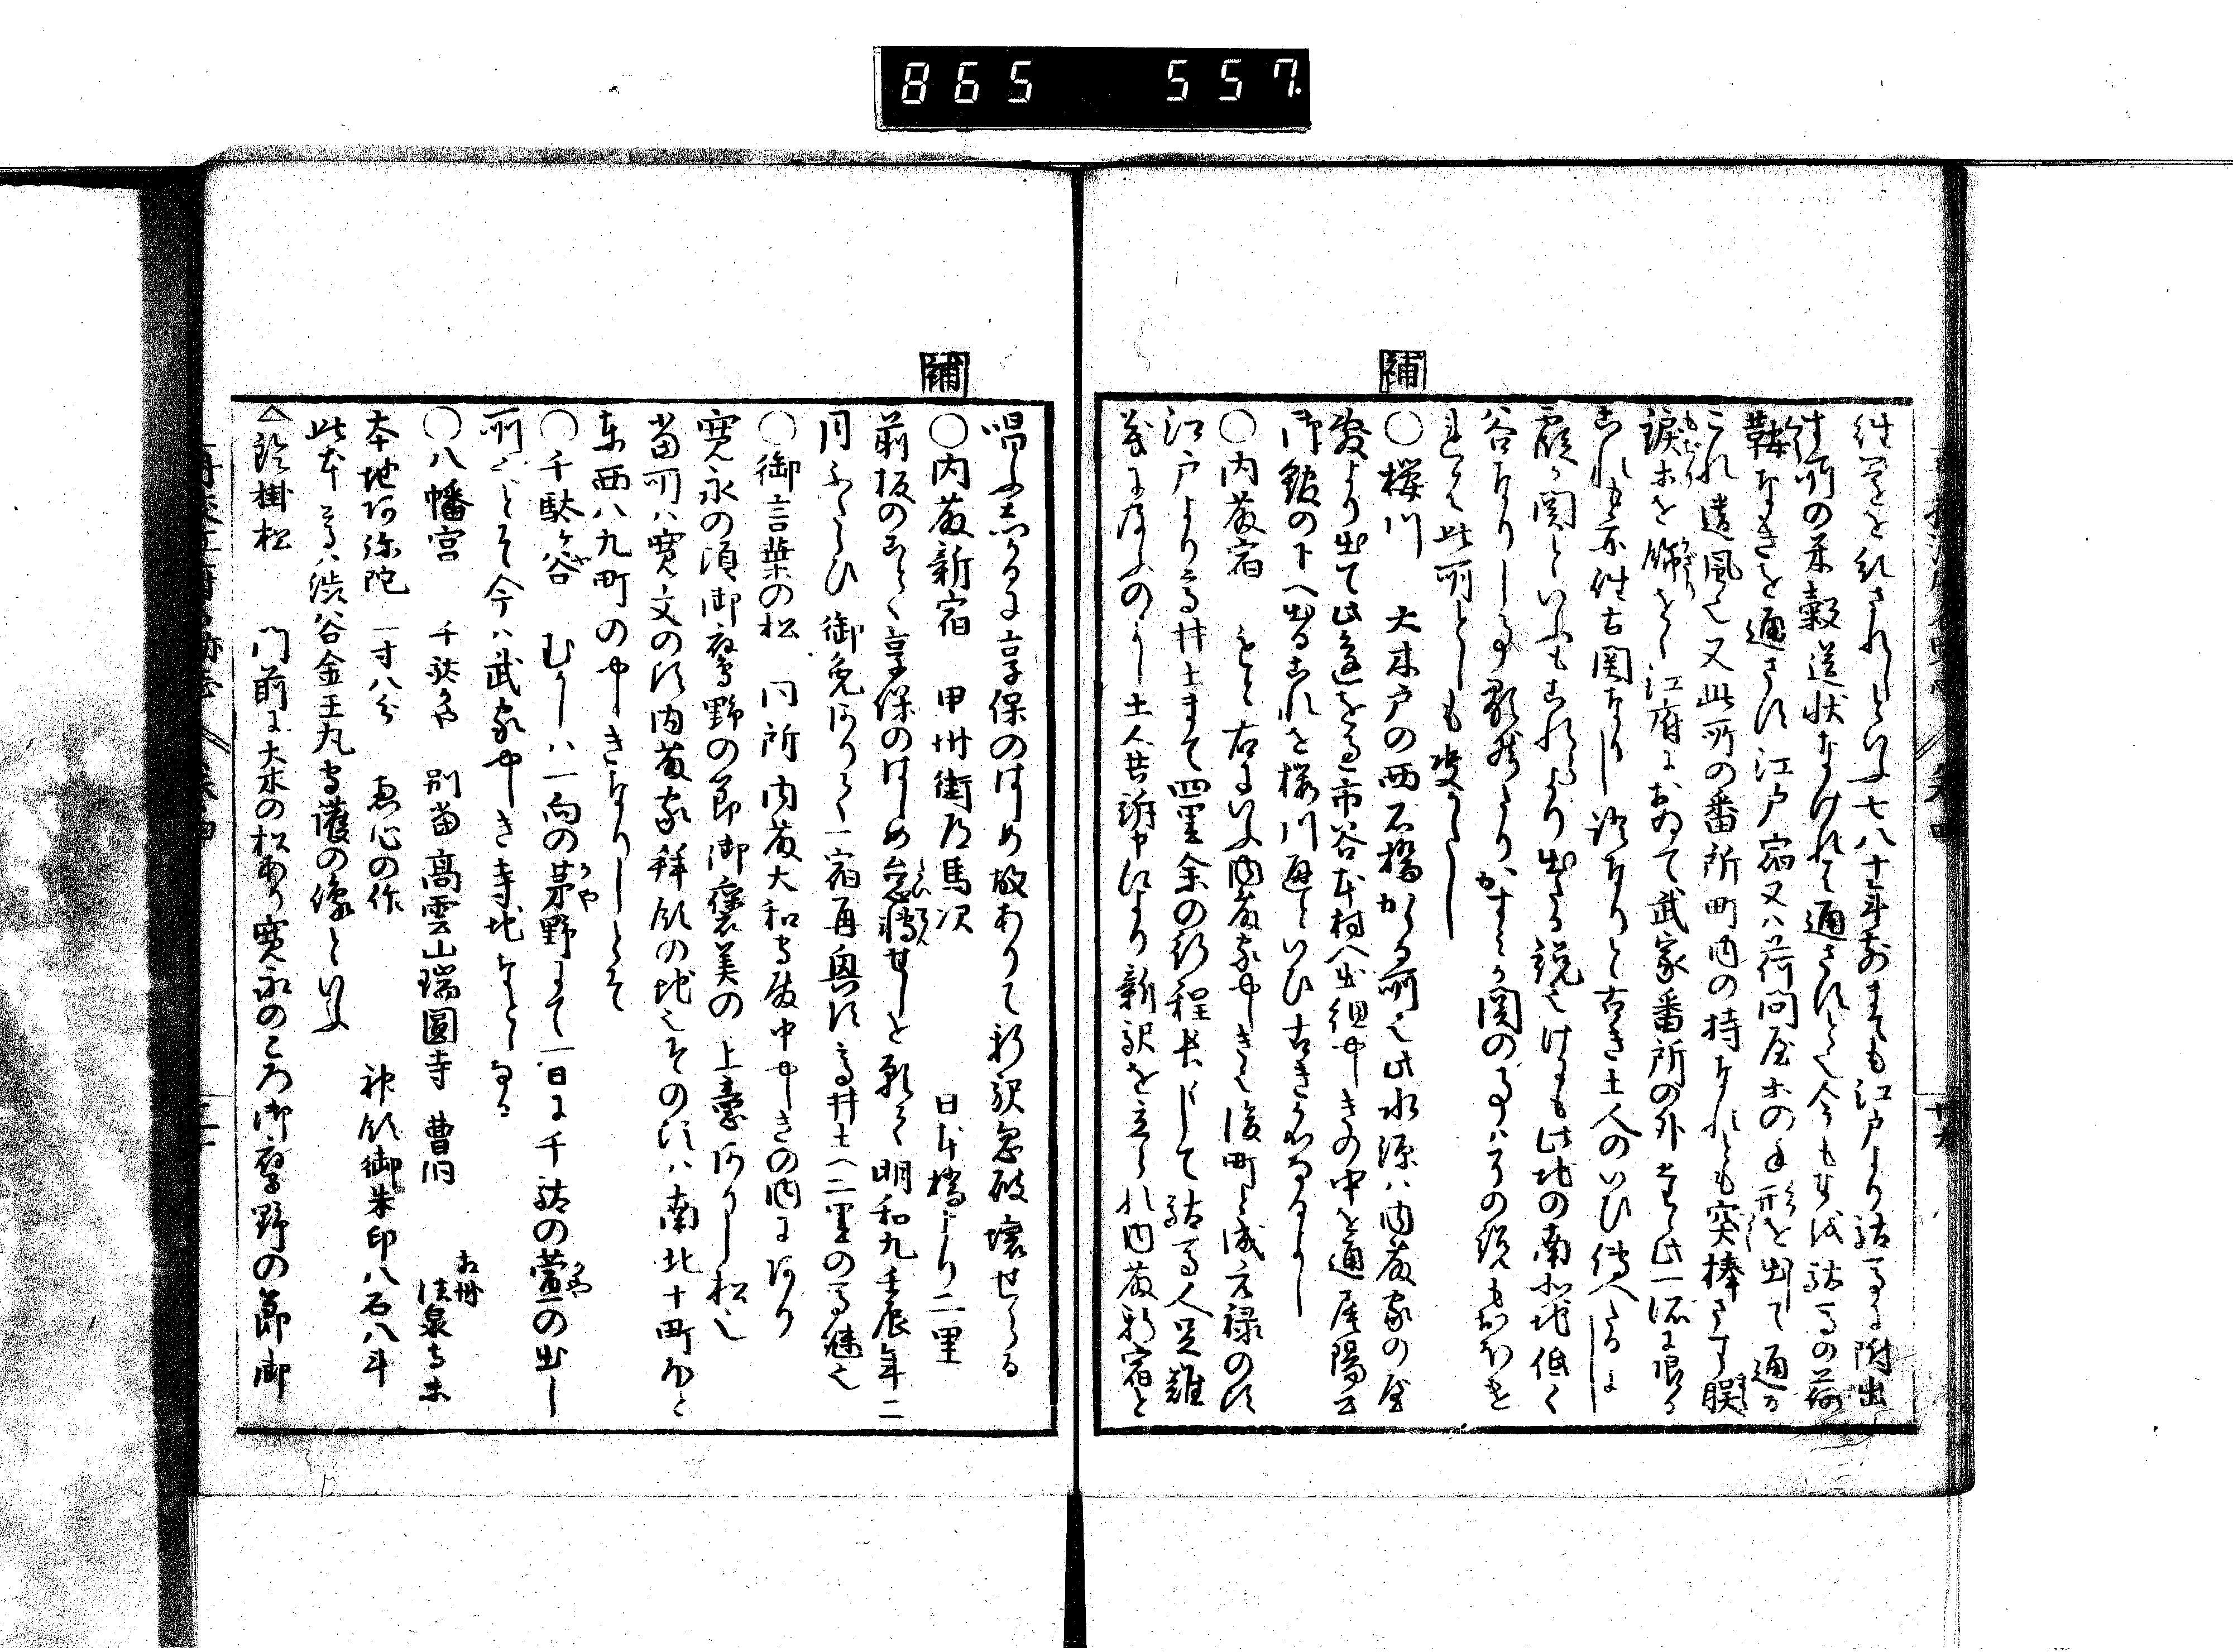 865 557
継目を糺されしといふ七八十年前までも江戸より駄馬に附出
往所の米穀送状なければ通さずして今も其武駄馬の荷
鞍なきを通さず江戸宿又ハ荷問屋等の手形を出て通る
これ遺風也又此所の番所町内の持なれとも突棒さす胯
錑等を餝をく江府におゐて武家番所の外そ此一所に限る
これも亦往古関なりし故なりと古き土人のいひ伝へたるに
霞か関といふもこれより出たる説也けにも此地の南北地低く
谷なりし事歴然たりかすミか関の事ハその説もおほけ
れは此所としも定かたし
補
○桜川 大木戸の西石橋かゝる所也此水源ハ内藤家の屋
敷より出て此道を通市谷本村へ出組やしきの中を通尾陽公
御館の下へ出るこれを桜川辺といひ古き名なるよし
○内藤宿 もと右にいふ内藤家やしき也後町と成元禄の頃
江戸より高井土まて四里余の行程長じて駄馬人足難
義に及ふのよし土人共訴申により新駅を立られ内藤新宿と
唱ふしかるに享保のはしめ故ありて新駅忽破壊せらる
補
○内藤新宿 甲州街道馬次 日本橋より二里
前板のことく享保のはしめ怠転せしを願て明和九壬辰年二
月ふたゝひ御免ありて一宿再興す高井土へ二里の馬継也
○御言葉の松 同所内藤大和守殿中やしきの内にあり
寛永の頃御鷹野の節御褒美の上意ありし松也
当所ハ寛文の頃内藤家拝領の地也その頃ハ南北十町ほと
東西八九町のやしきなりしとそ
○千駄ヶ谷 むかしハ一向の茅野にて一日に千駄の萱の出し
所ゟとそ今ハ武家やしき寺地となる
○八幡宮 千駄ヶや 別当高雲山瑞圓寺 曹洞 相州法泉寺末
本地阿弥陀 一寸八分 恵心の作 神領御朱印八石八斗
此本尊ハ渋谷金王丸守護の像といふ
△鈴掛松 門前に大木の松あり寛永のころ御鷹野の節御